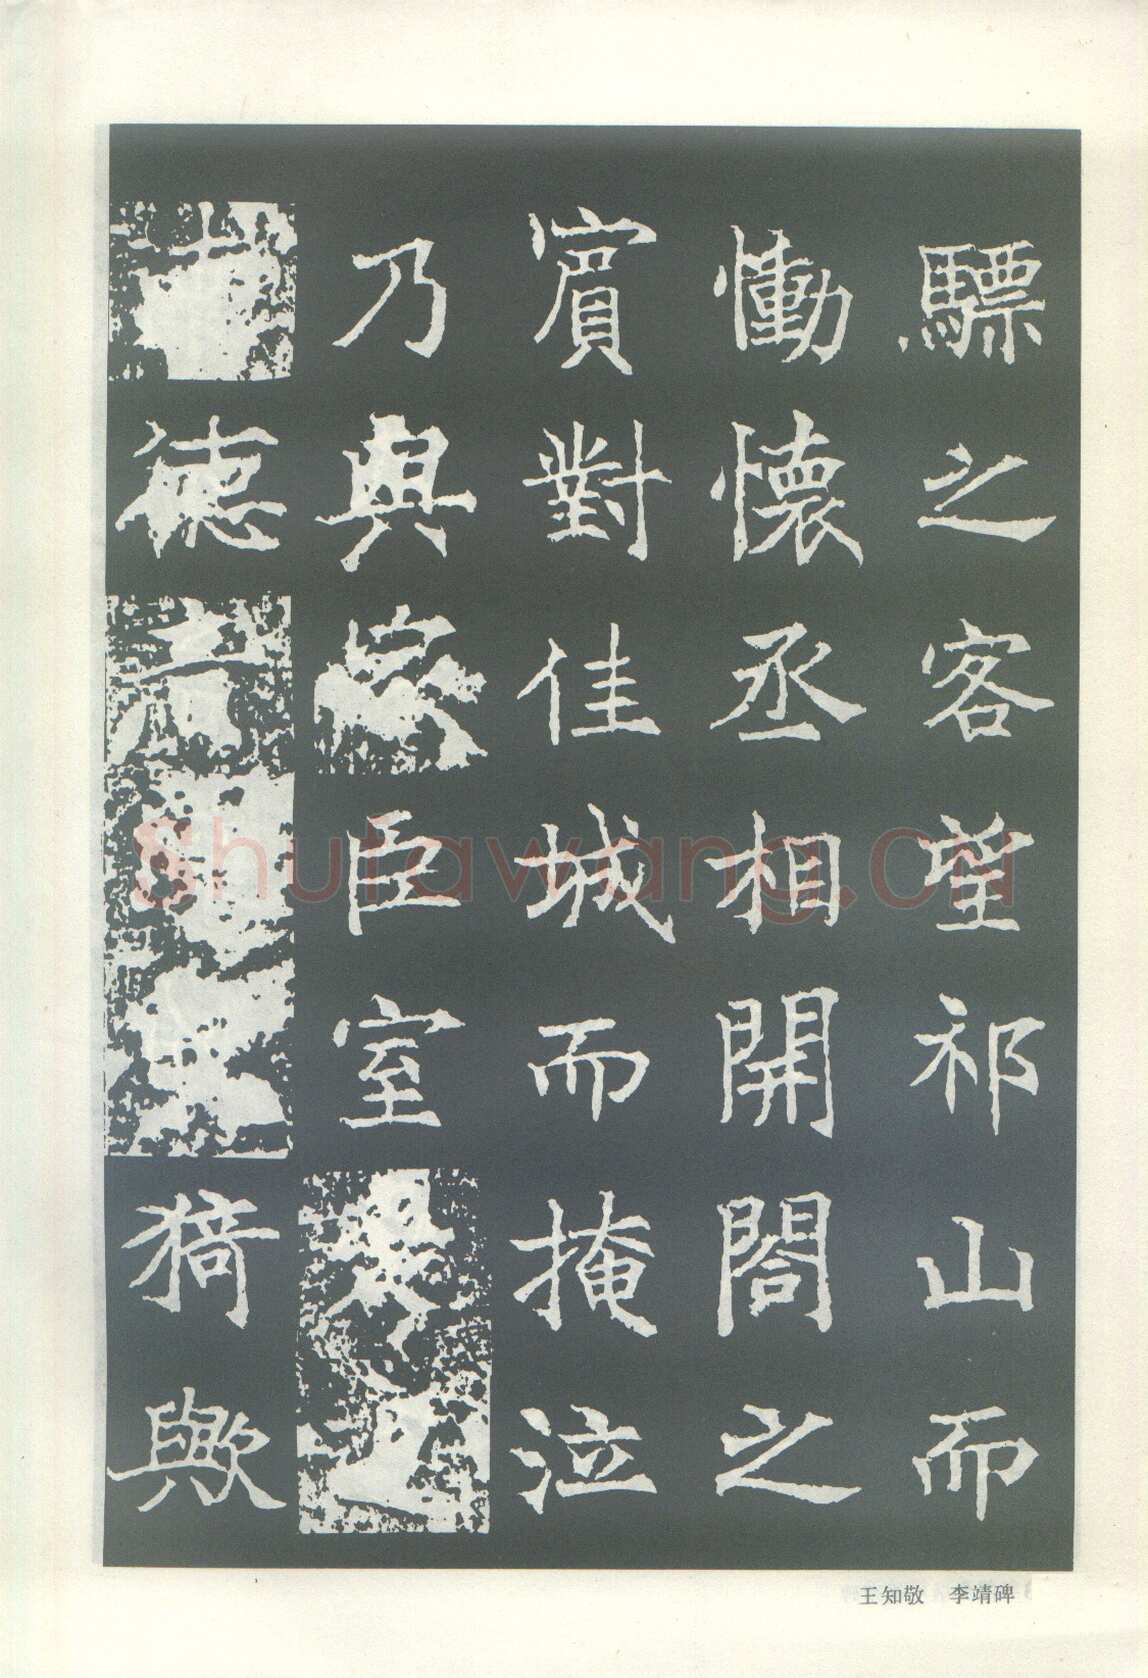 驃之客望祁山而
慟懷丞相開閤之
賓對佳城而掩泣
乃與家臣室
德猗歟
王知敬 李靖碑
Shufawang.CN